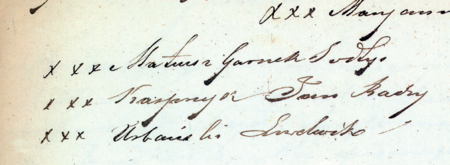 xxx Maryann
xxx Mateusz Garnek Sołtys
xxx Kacprzyk Jan Radny
xxx Urbański Ludwik